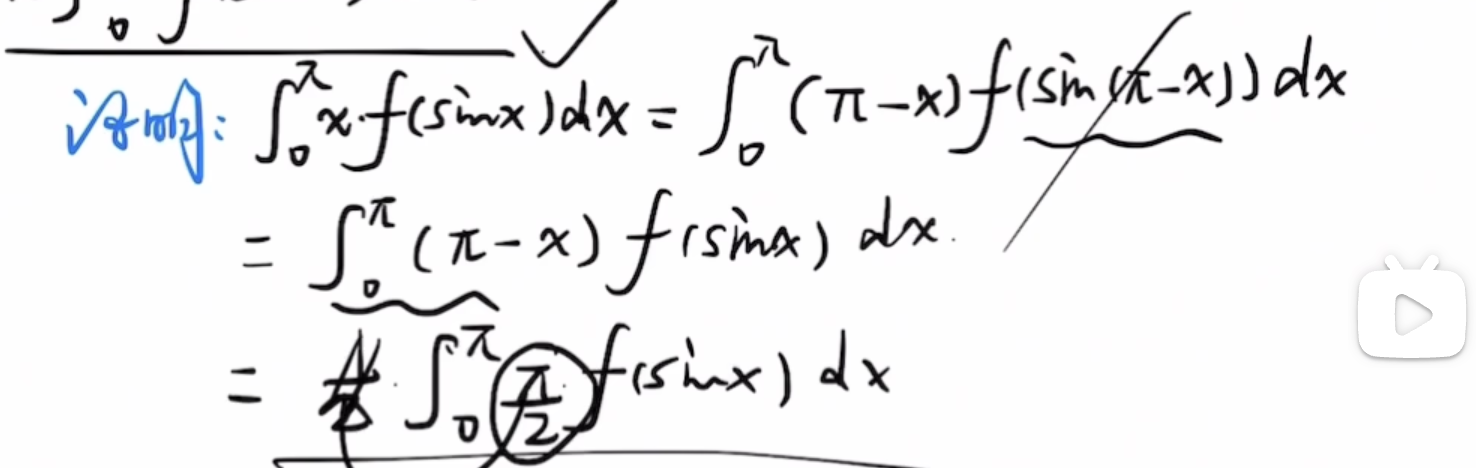 证明: ∫₀^π x·f(sinx)dx = ∫₀^π (π-x)f(sin(π-x))dx
= ∫₀^π (π-x) f(sinx) dx.
= ∫₀^π π/2 f(sinx) dx